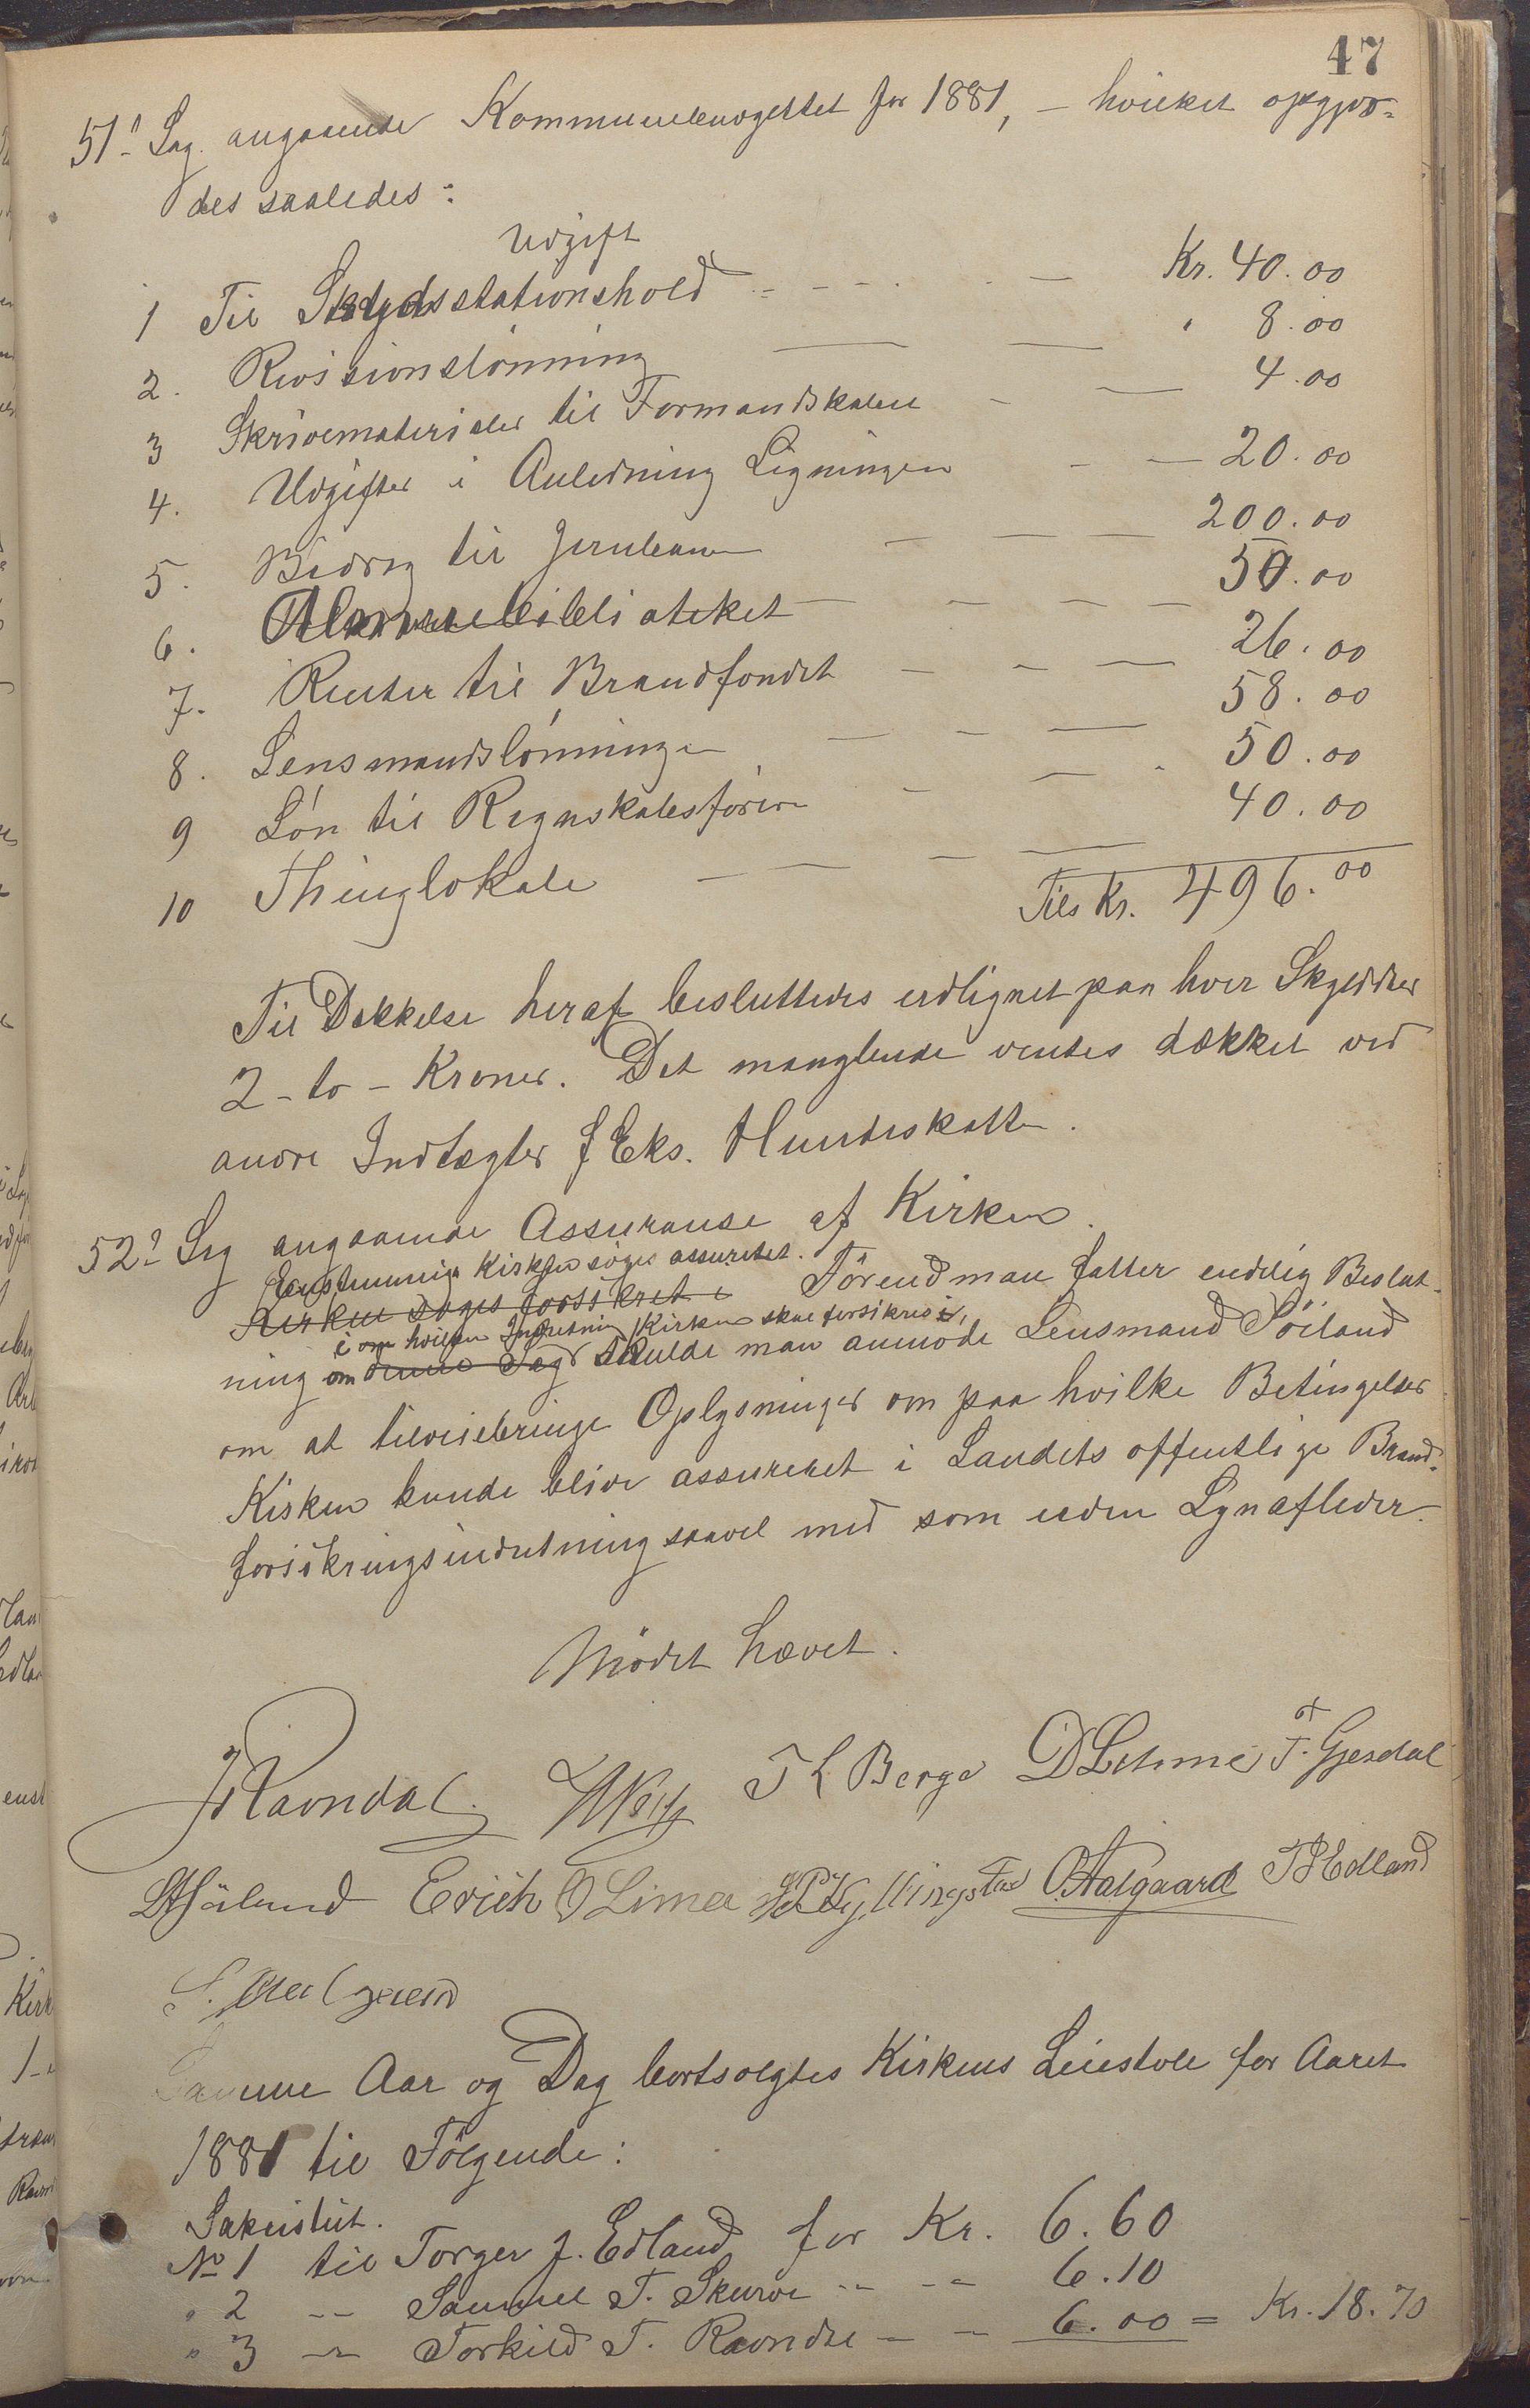 47
51. Sag angaaende Kommunebudgettet for 1881, – hvilket opgjor=
des saaledes:
Udgift
1 Til Skydsstationshold - - - - Kr. 40.00
2. Revisionslönning — — " 8.00
3 Skrivematerialer til Formandskabet - — 4.00
4. Udgifter i Anledning Ligningen - — 20.00
5. Bidrag til Jernbanen — — — 200.00
6. Almuebibliotheket — — — — 50.00
7. Renter til Brandfondet — — — 26.00
8. Lensmandslönningen — — — 58.00
9 Lön til Regnskabsförer - — - 50.00
10 Thinglokale — — — — 40.00
Tils Kr. 496.00
Til Dækkelse heraf besluttedes udlignet paa hver Skylddler
2 - to - Kroner. Det manglende ventes dækket ved
andre Indtægter f Eks. Hundeskatten.
52. Sag angaaende Assuranse af Kirken.
Enstemmig Kirken söges assureret.
Kirken söges forsikret i Förend man fatter endelig Beslut-
i om hvilken Indretning Kirken skal forsikres i,
ning om denne Sag skulde man anmode Lensmand Söiland
om at tilveiebringe Oplysninger om paa hvilke Betingelser
Kirken kunde blive assureret i Landets offentlige Brand-
forsikringsindretning saavel med som uden Lynafleder.
Mödet hævet.
J Ravndal. T L Berge D Lehme T. T. Gjesdal
Söiland Erich O Lima Kyllingstad O. Aalgaard T Edland
S. Aalgaard
Samme Aar og Dag bortsolgtes Kirkens Leiestole for Aaret
1881 til Fölgende:
Sakristiet.
No 1 til Torger J. Edland for Kr. 6.60
" 2 -- Samuel T. Skurve -- -- 6.10
" 3 -- Torkild T. Ravndal -- -- 6.00 = Kr. 18.70